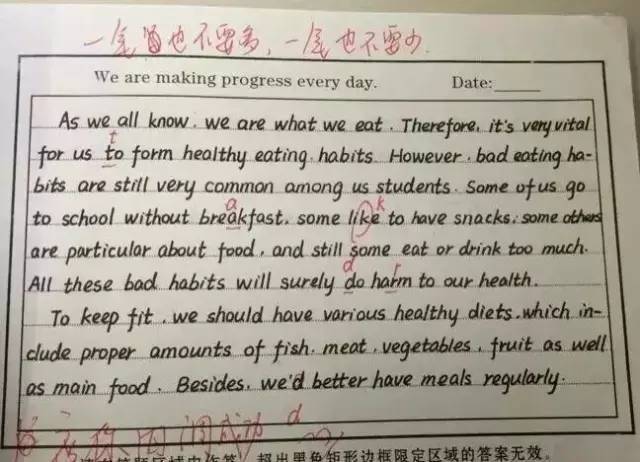 一尾当也不要多，一尾也不要少.
We are making progress every day. Date:
As we all know, we are what we eat. Therefore, it's very vital
t
for us to form healthy eating habits. However, bad eating ha-
bits are still very common among us students. Some of us go
a k
to school without breakfast, some like to have snacks, some others
are particular about food, and still some eat or drink too much.
d r
All these bad habits will surely do harm to our health.
To keep fit, we should have various healthy diets, which in-
clude proper amounts of fish, meat, vegetables, fruit as well
as main food. Besides, we'd better have meals regularly.
你 成功 d
超出黑色矩形边框限定区域的答案无效。